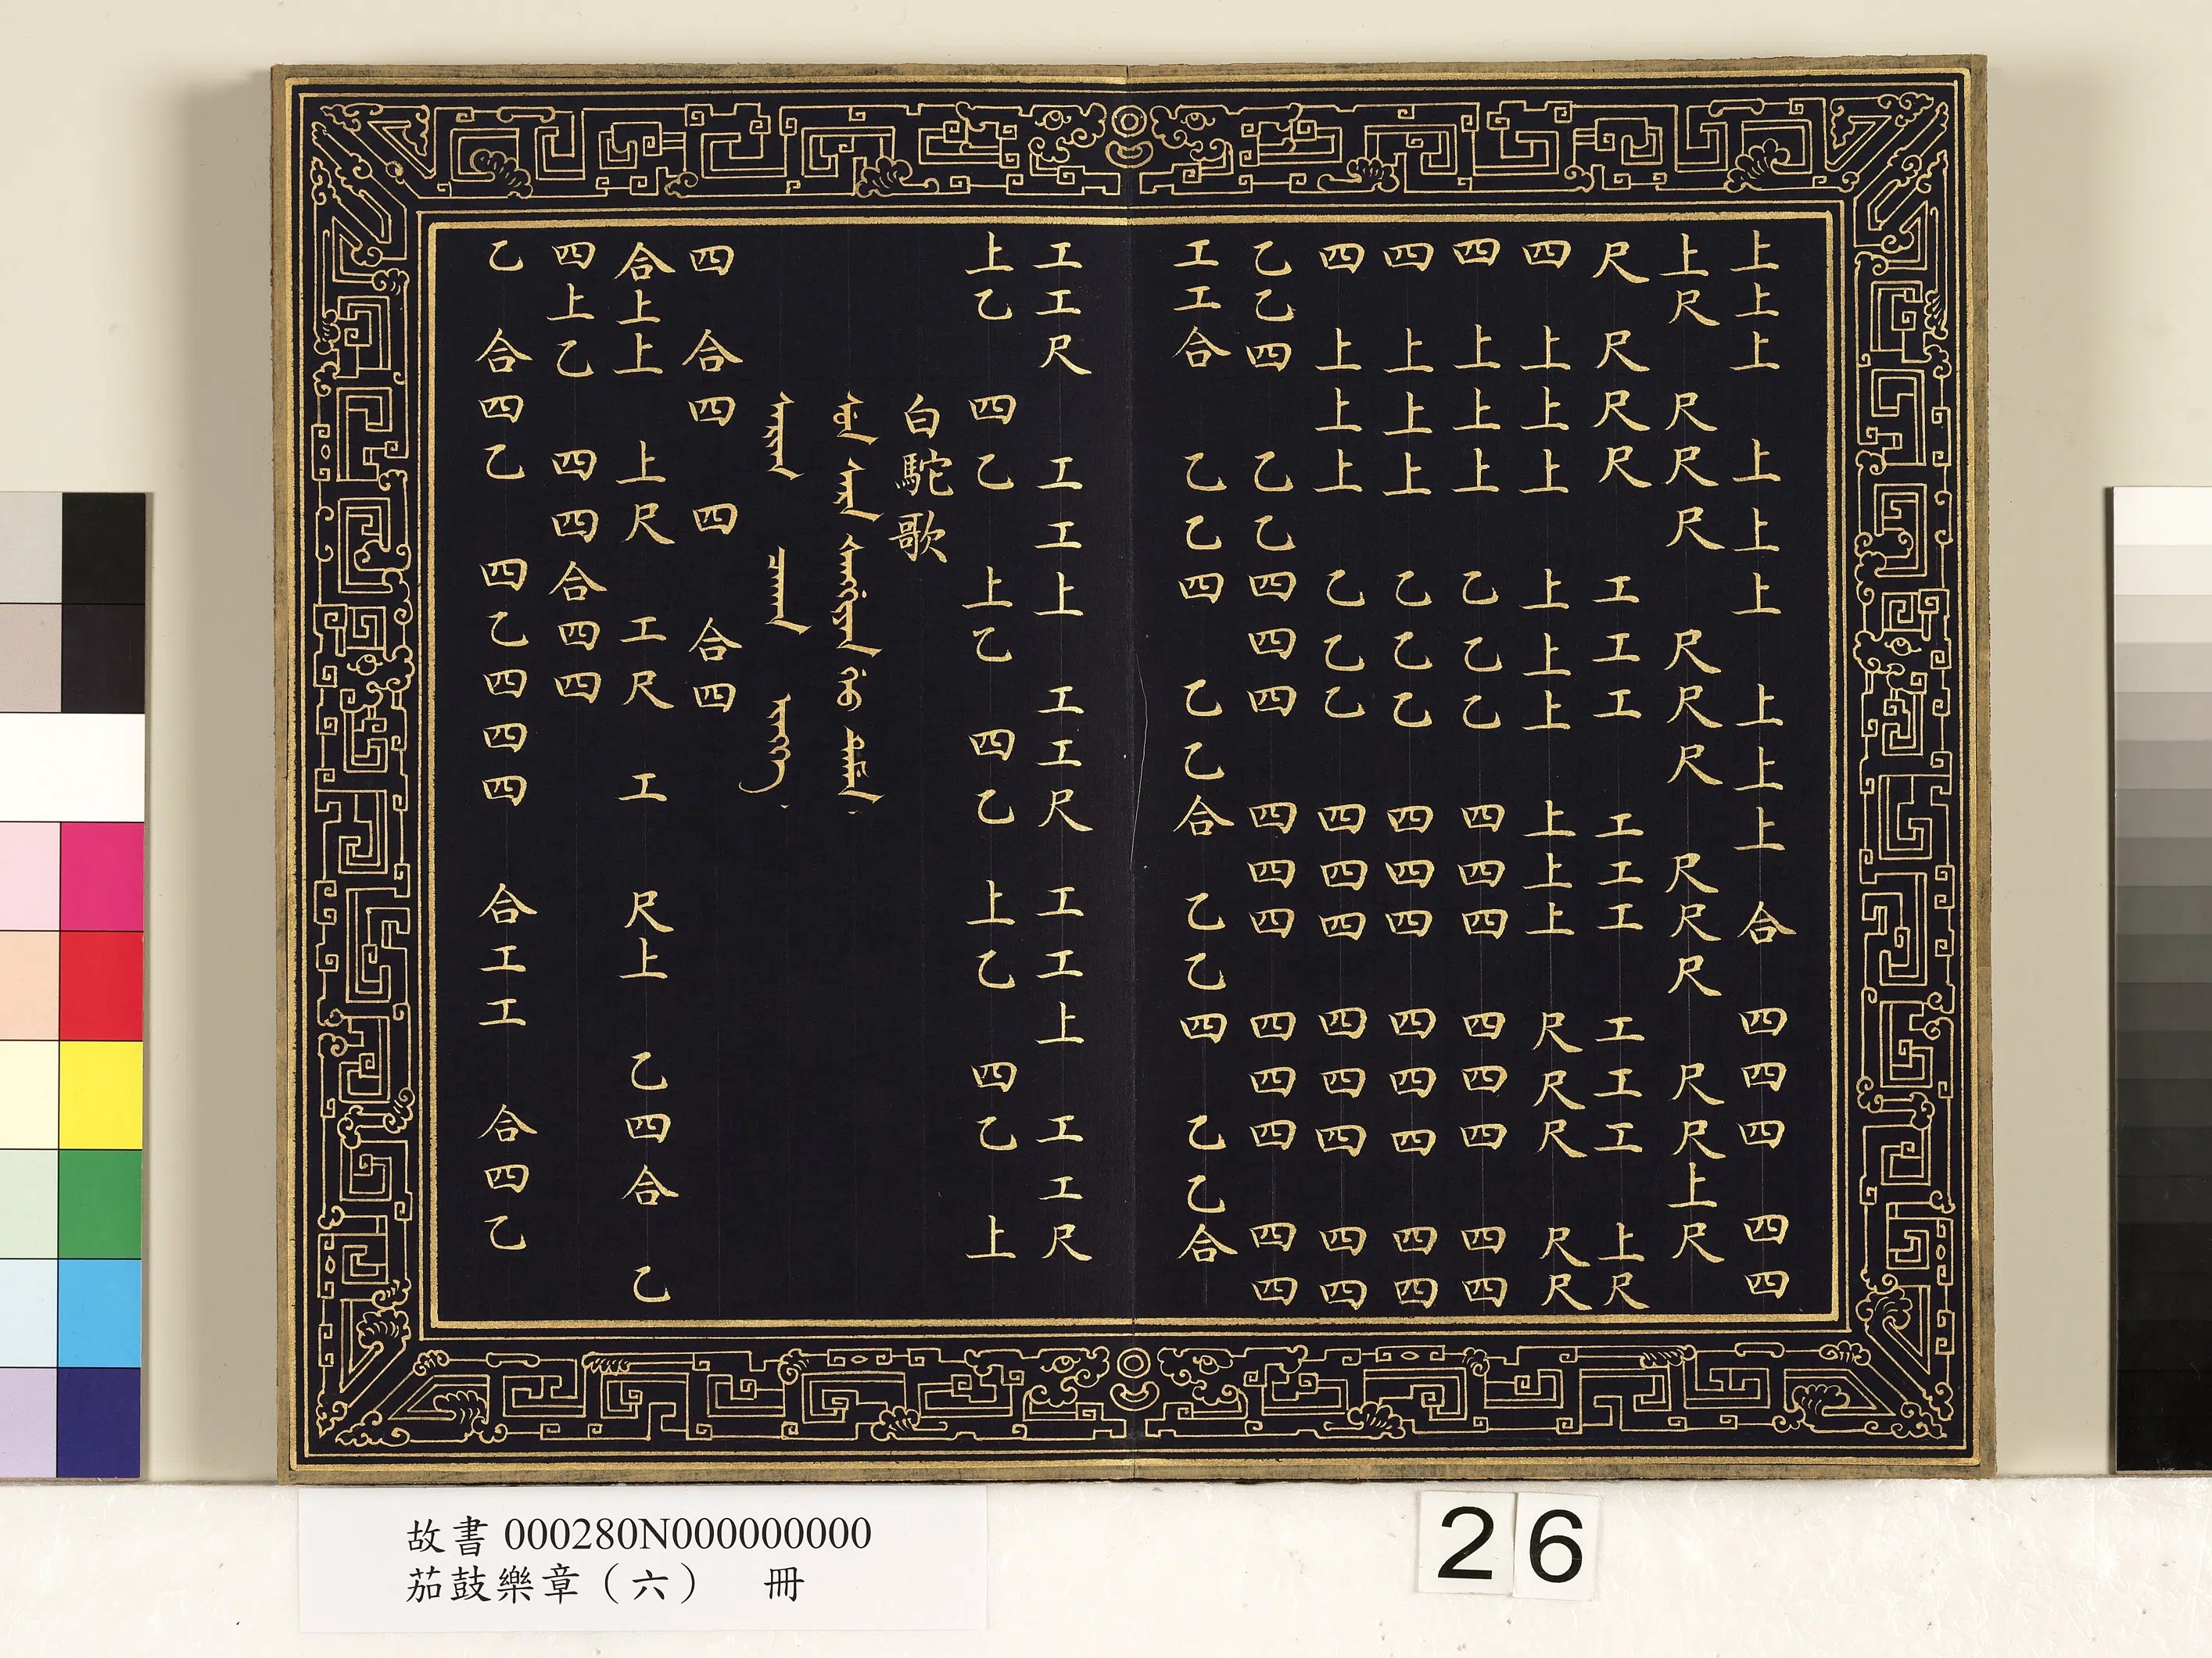 上上上 上上上 上上上 合 四四四 四四
上尺 尺尺尺 尺尺尺 尺尺尺 尺尺上尺
尺 尺尺尺 工工工 工工工 工工工 上尺
四 上上上 上上上 上上上 尺尺尺 尺尺
四 上上上 乙乙乙 四四四 四四四 四四
四 上上上 乙乙乙 四四四 四四四 四四
四 上上上 乙乙乙 四四四 四四四 四四
乙乙四 乙乙四四四 四四四 四四四 四四
工工合 乙乙四 乙乙合 乙乙四 乙乙合
工工尺 工工上 工工尺 工工上 工工尺
上乙 四乙 上乙 四乙 上乙 四乙 上
白駝歌
四 合四 四 合四
合上上 上尺 工尺 工 尺上 乙四合 乙
四上乙 四四合四四
乙 合四乙 四乙四四四 合工工 合四乙
故書 000280N000000000
茄鼓樂章（六） 冊
26